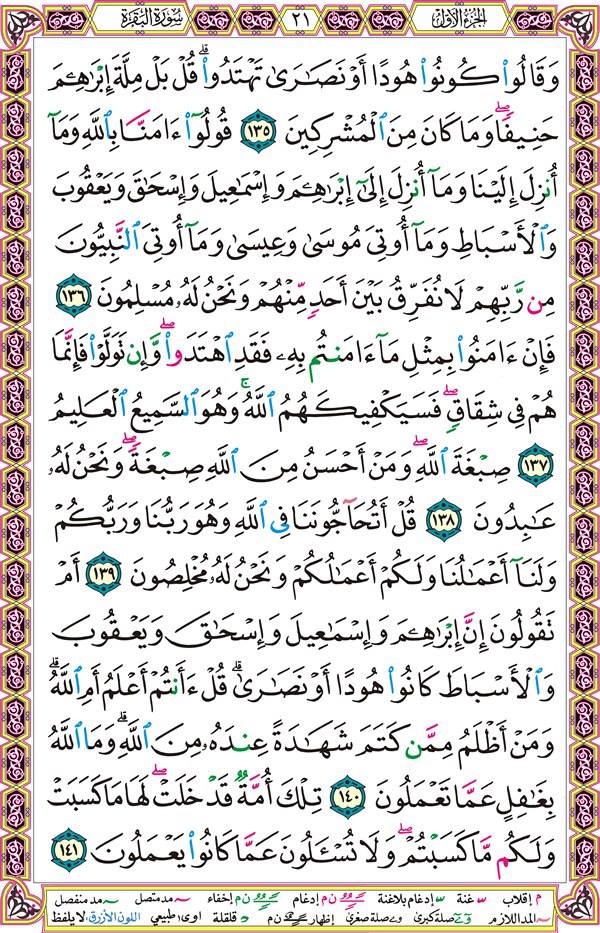 سُورَةُ البَقَرَةِ ٢١ الجُزْءُ الأَوَّلُ
وَقَالُوا۟ كُونُوا۟ هُودًا أَوْ نَصَٰرَىٰ تَهْتَدُوا۟ ۗ قُلْ بَلْ مِلَّةَ إِبْرَٰهِـۧمَ
حَنِيفًا ۖ وَمَا كَانَ مِنَ ٱلْمُشْرِكِينَ ١٣٥ قُولُوٓا۟ ءَامَنَّا بِٱللَّهِ وَمَآ
أُنزِلَ إِلَيْنَا وَمَآ أُنزِلَ إِلَىٰٓ إِبْرَٰهِـۧمَ وَإِسْمَٰعِيلَ وَإِسْحَٰقَ وَيَعْقُوبَ
وَٱلْأَسْبَاطِ وَمَآ أُوتِىَ مُوسَىٰ وَعِيسَىٰ وَمَآ أُوتِىَ ٱلنَّبِيُّونَ
مِن رَّبِّهِمْ لَا نُفَرِّقُ بَيْنَ أَحَدٍ مِّنْهُمْ وَنَحْنُ لَهُۥ مُسْلِمُونَ ١٣٦
فَإِنْ ءَامَنُوا۟ بِمِثْلِ مَآ ءَامَنتُم بِهِۦ فَقَدِ ٱهْتَدَوا۟ ۖ وَّإِن تَوَلَّوْا۟ فَإِنَّمَا
هُمْ فِى شِقَاقٍ ۖ فَسَيَكْفِيكَهُمُ ٱللَّهُ ۚ وَهُوَ ٱلسَّمِيعُ ٱلْعَلِيمُ
١٣٧ صِبْغَةَ ٱللَّهِ ۖ وَمَنْ أَحْسَنُ مِنَ ٱللَّهِ صِبْغَةً ۖ وَنَحْنُ لَهُۥ
عَٰبِدُونَ ١٣٨ قُلْ أَتُحَآجُّونَنَا فِى ٱللَّهِ وَهُوَ رَبُّنَا وَرَبُّكُمْ
وَلَنَآ أَعْمَٰلُنَا وَلَكُمْ أَعْمَٰلُكُمْ وَنَحْنُ لَهُۥ مُخْلِصُونَ ١٣٩ أَمْ
تَقُولُونَ إِنَّ إِبْرَٰهِـۧمَ وَإِسْمَٰعِيلَ وَإِسْحَٰقَ وَيَعْقُوبَ
وَٱلْأَسْبَاطَ كَانُوا۟ هُودًا أَوْ نَصَٰرَىٰ ۗ قُلْ ءَأَنتُمْ أَعْلَمُ أَمِ ٱللَّهُ ۗ
وَمَنْ أَظْلَمُ مِمَّن كَتَمَ شَهَٰدَةً عِندَهُۥ مِنَ ٱللَّهِ ۗ وَمَا ٱللَّهُ
بِغَٰفِلٍ عَمَّا تَعْمَلُونَ ١٤٠ تِلْكَ أُمَّةٌ قَدْ خَلَتْ ۖ لَهَا مَا كَسَبَتْ
وَلَكُم مَّا كَسَبْتُمْ ۖ وَلَا تُسْـَٔلُونَ عَمَّا كَانُوا۟ يَعْمَلُونَ ١٤١
م إقلاب غنة إدغام بلاغنة ن م إدغام ن م إخفاء مد متصل مد منفصل
المد اللازم صلة كبرى صلة صغرى إظهار ن م قلقلة اوى، طبيعي اللون الأزرق: لا يلفظ